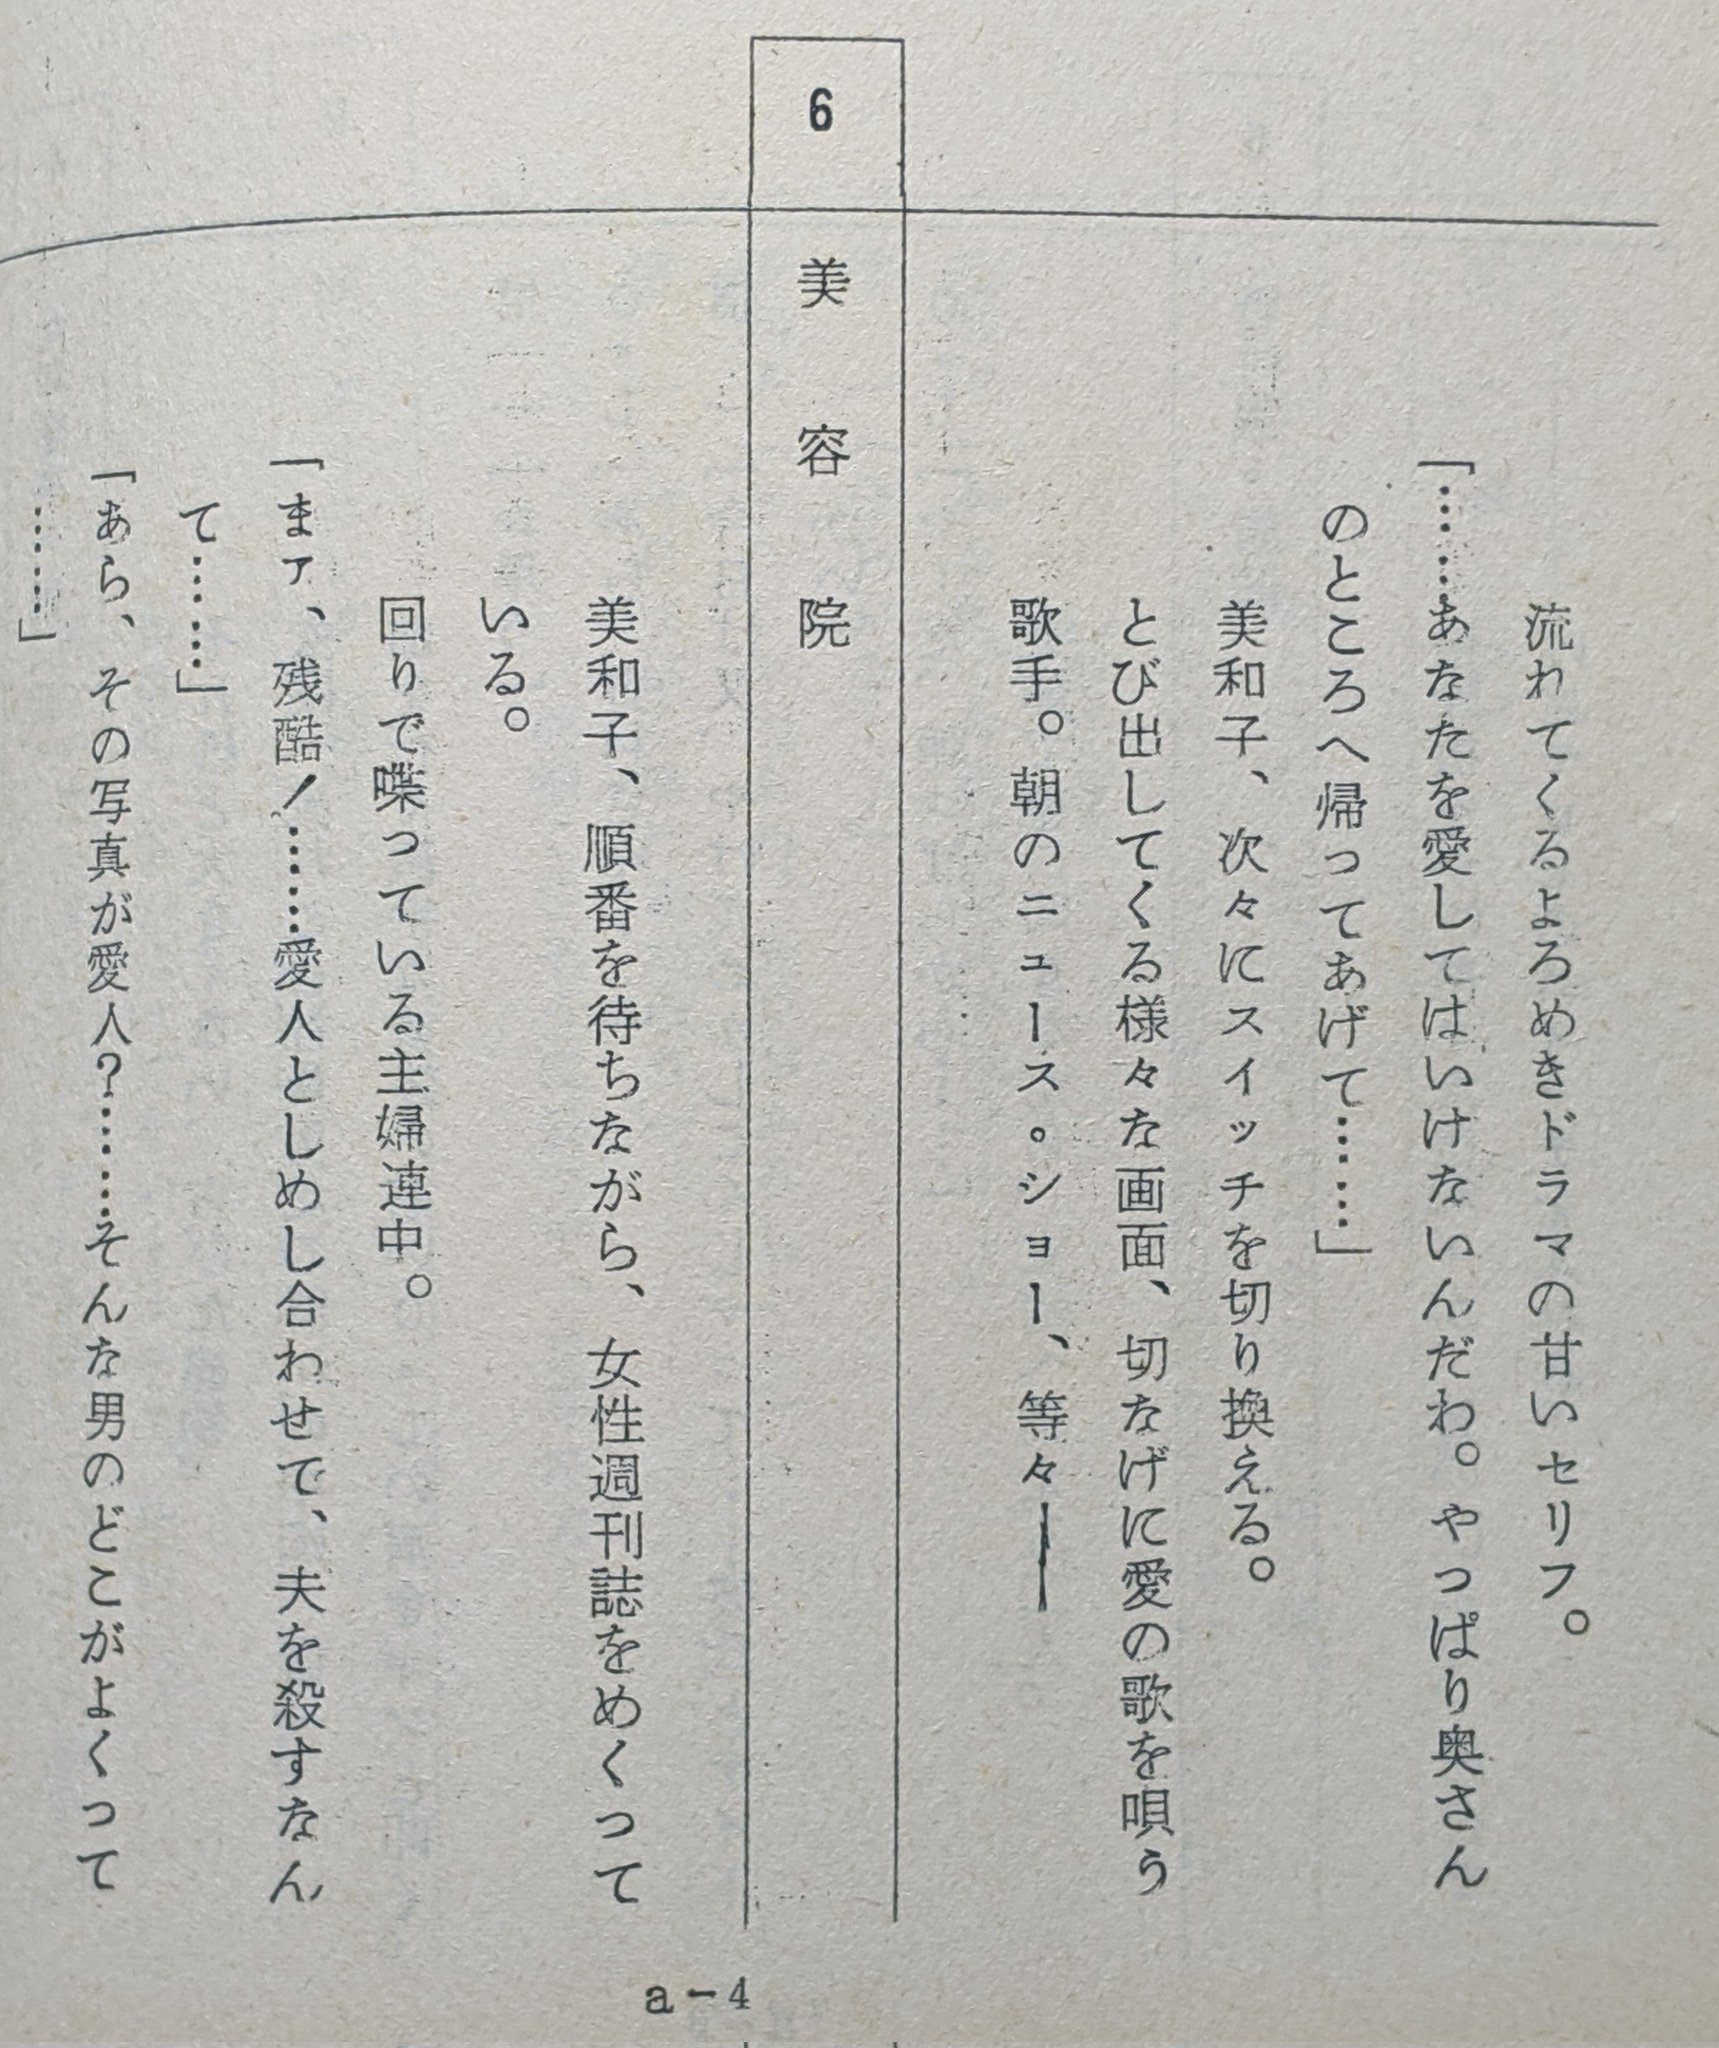 流れてくるよろめきドラマの甘いセリフ。
「……あなたを愛してはいけないんだわ。やっぱり奥さん
のところへ帰ってあげて……」
美和子、次々にスイッチを切り換える。
とび出してくる様々な画面、切なげに愛の歌を唄う
歌手。朝のニュース・ショー、等々──
6 美容院
美和子、順番を待ちながら、女性週刊誌をめくって
いる。
回りで喋っている主婦連中。
「まァ、残酷!……愛人としめし合わせて、夫を殺すなん
て……」
「あら、その写真が愛人?……そんな男のどこがよくって
……」
a-4